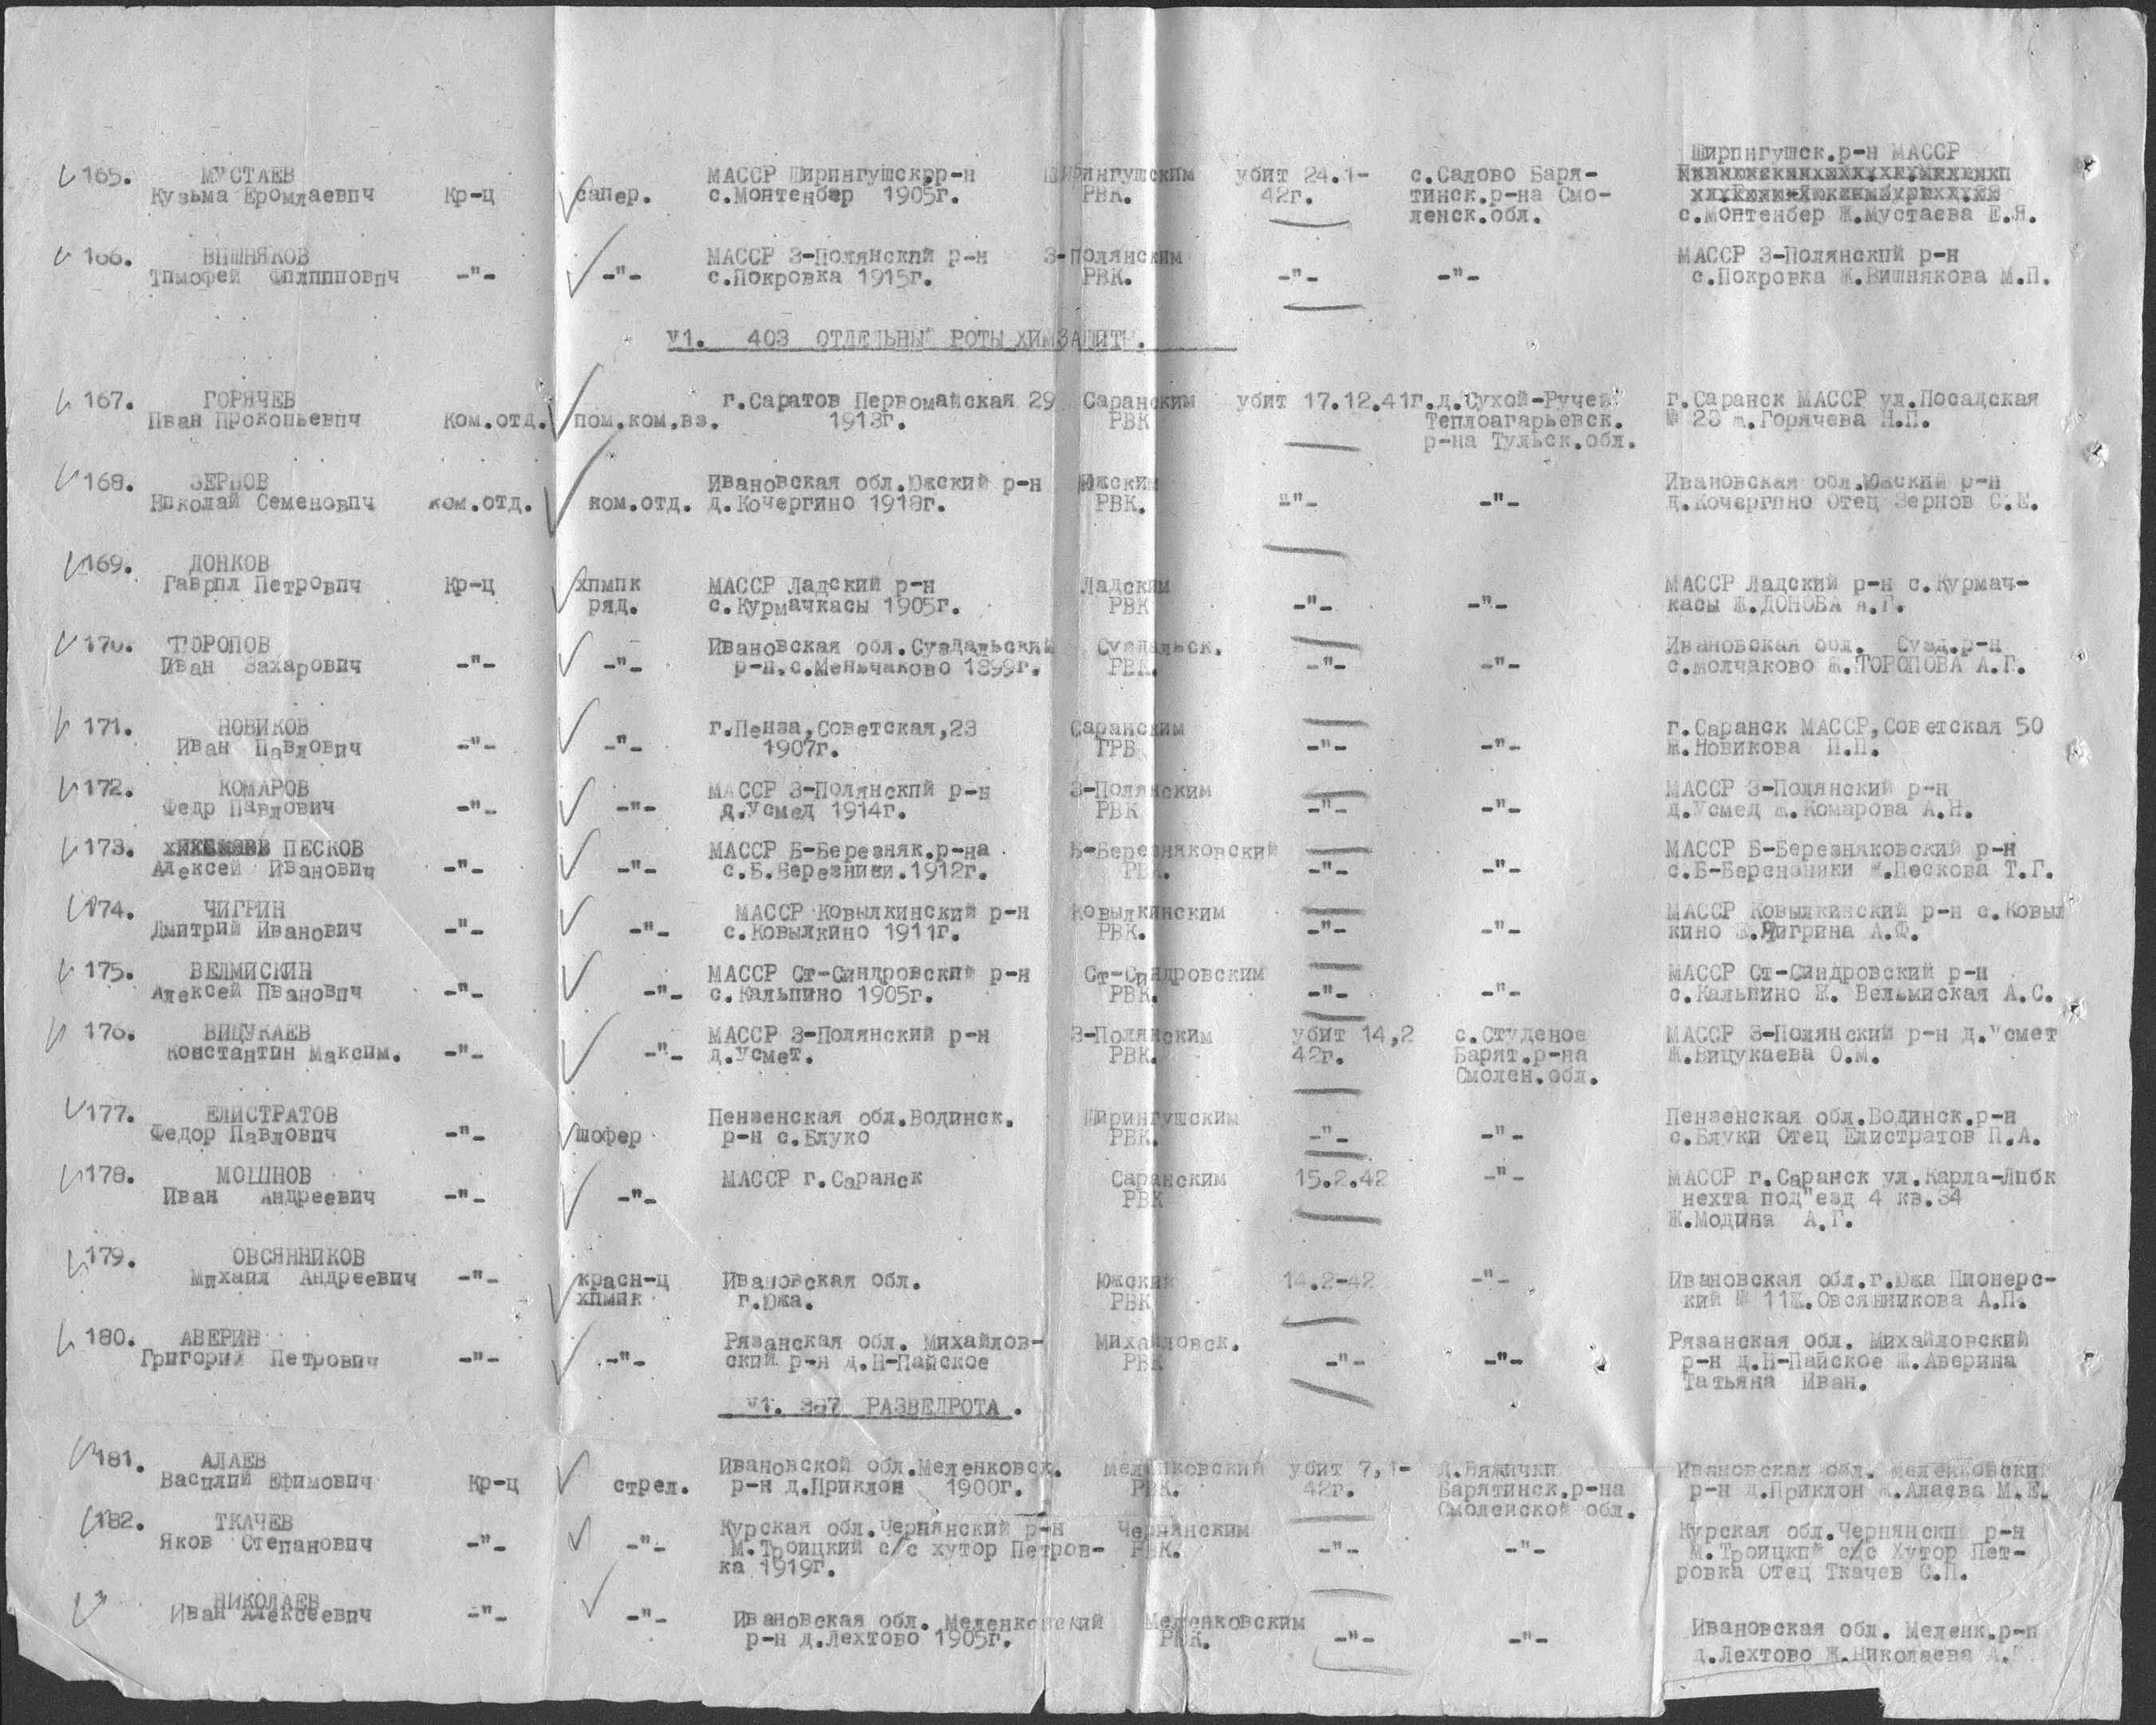 Ширингушск.р-н МАССР
165. МУСТАЕВ МАССР Ширингушскрр-н Ширингушским убит 24.1- с.Садово Баря-
Кузьма Еромлаевич Кр-ц сапер. с.Монтенбер 1905г. РВК. 42г. тинск.р-на Смо-
ленск.обл. с.Монтенбер Ж.Мустаева Е.Я.
166. ВИШНЯКОВ МАССР З-Полянский р-н З-Полянским МАССР З-Полянский р-н
Тимофей Филиппович -"- -"- с.Покровка 1915г. РВК. -"- -"- с.Покровка Ж.Вишнякова М.П.
У1. 403 ОТДЕЛЬНЫЙ РОТЫ ХИМЗАЩИТЫ.
167. ГОРЯЧЕВ г.Саратов Первомайская 29 Саранским убит 17.12.41г.д.Сухой-Ручей г.Саранск МАССР ул.Посадская
Иван Прокопьевич Ком.отд. пом.ком.вз. 1913г. РВК Теплоагарьевск. № 23 м.Горячева Н.П.
р-на Тульск.обл.
168. ЗЕРНОВ Ивановская обл.Южский р-н Южским Ивановская обл.Южский р-н
Николай Семенович ком.отд. ком.отд. д.Кочергино 1918г. РВК. -"- -"- д.Кочергино Отец Зернов С.Е.
169. ДОНКОВ
Гаврил Петрович Кр-ц химик МАССР Ладский р-н Ладским МАССР Ладский р-н с.Курмач-
ряд. с.Курмачкасы 1905г. РВК -"- -"- касы Ж.ДОНОВА А.Г.
170. ТОРОПОВ Ивановская обл.Суздальский Суздальск. Ивановская обл. Сузд.р-н
Иван Захарович -"- -"- р-н.с.Меньчаково 1899г. РВК. -"- -"- с.Молчаково Ж.ТОРОПОВА А.Г.
171. НОВИКОВ г.Пенза,Советская,23 Саранским г.Саранск МАССР,Советская 50
Иван Павлович -"- -"- 1907г. ГРВ -"- -"- Ж.Новикова П.П.
172. КОМАРОВ МАССР З-Полянский р-н З-Полянским МАССР З-Полянский р-н
Федр Павлович -"- -"- д.Усмед 1914г. РВК -"- -"- д.Усмед Ж.Комарова А.Н.
173. ПЕСКОВ МАССР Б-Березняк.р-на Б-Березняковский МАССР Б-Березняковский р-н
Алексей Иванович -"- -"- с.Б.Березники.1912г. РВК. -"- -"- с.Б-Беренэники Ж.Пескова Т.Г.
174. ЧИГРИН МАССР Ковылкинский р-н Ковылкинским МАССР Ковылкинский р-н с.Ковыл
Дмитрий Иванович -"- -"- с.Ковылкино 1911г. РВК. -"- -"- кино Ж.Чигрина А.Ф.
175. ВЕЛМИСКИН МАССР Ст-Синдровский р-н Ст-Синдровским МАССР Ст-Синдровский р-н
Алексей Иванович -"- -"- с.Кальпино 1905г. РВК. -"- -"- с.Кальпино Ж. Вельмиская А.С.
176. ВИЦУКАЕВ МАССР З-Полянский р-н З-Полянским убит 14,2 с.Студеное МАССР З-Полянский р-н д.Усмет
Константин Максим. -"- -"- д.Усмет. РВК. 42г. Барят.р-на Ж.Вицукаева О.М.
Смолен.обл.
177. ЕЛИСТРАТОВ Пензенская обл.Водинск. Ширингушским Пензенская обл.Водинск.р-н
Федор Павлович -"- шофер р-н с.Блуко РВК. -"- -"- с.Блуки Отец Елистратов П.А.
178. МОШНОВ МАССР г.Саранск Саранским 15.2.42 -"- МАССР г.Саранск ул.Карла-Либк
Иван Андреевич -"- -"- РВК нехта под"езд 4 кв.34
Ж.Модина А.Г.
179. ОВСЯННИКОВ
Михаил Андреевич -"- красн-ц Ивановская обл. Южский 14.2-42 -"- Ивановская обл.г.Южа Пионерс-
химик г.Южа. РВК кий № 11Ж.Овсянникова А.П.
180. АВЕРИН Рязанская обл. Михайлов- Михайловск. Рязанская обл. Михайловский
Григорий Петрович -"- -"- ский р-н д.Н-Пайское РВК -"- -"- р-н д.Н-Пайское Ж.Аверина
Татьяна Иван.
У1. 387 РАЗВЕДРОТА.
181. АЛАЕВ Ивановской обл.Меленковск. Меленковский убит 7,1- д.Вяжички Ивановская обл. Меленковский
Василий Ефимович Кр-ц стрел. р-н д.Приклон 1900г. РВК. 42г. Барятинск.р-на р-н д.Приклон Ж.Алаева М.Е.
Смоленской обл.
182. ТКАЧЕВ Курская обл.Чернянский р-н Чернянским Курская обл.Чернянский р-н
Яков Степанович -"- -"- М.Троицкий с/с хутор Петров- РВК. -"- -"- М.Троицкий с/с Хутор Пет-
ка 1919г. ровка Отец Ткачев С.П.
НИКОЛАЕВ
Иван Алексеевич -"- -"- Ивановская обл. Меленковский Меленковским Ивановская обл. Меленк.р-н
р-н д.Лехтово 1905г. РВК. -"- -"- д.Лехтово Ж.Николаева А.